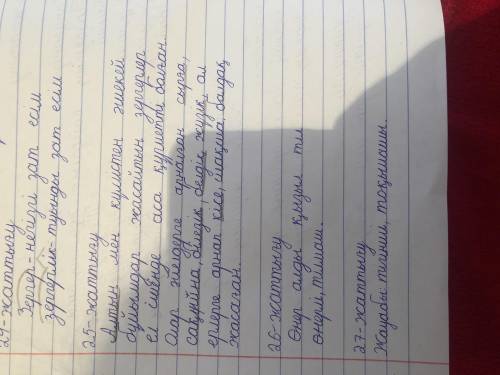 24-жаттығу
Зергер - негізгі зат есім
зергерлік - туынды зат есім
25-жаттығу
Алтын мен күмістен әшекей
бұйымдар жасайтын зергерлер
ел ішінде аса құрметті болған.
Олар әйелдерге арналған сырға,
сақина, білезік, сақина жүзік, ал
ерлерге арнап кісе, шақша, балдақ
жасаған.
26-жаттығу
Өнер алды қызыл тіл
өнерлі, тілмаш.
27-жаттығу
Жауабы: тігінші, тоқымашы.